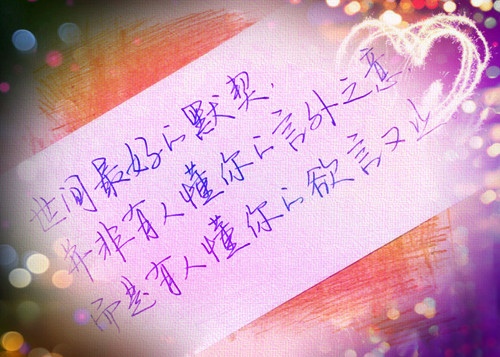 世间最好的默契，
并非有人懂你的言外之意，
而是有人懂你的欲言又止